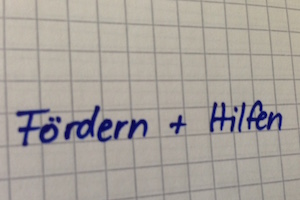 Fördern + Hilfen